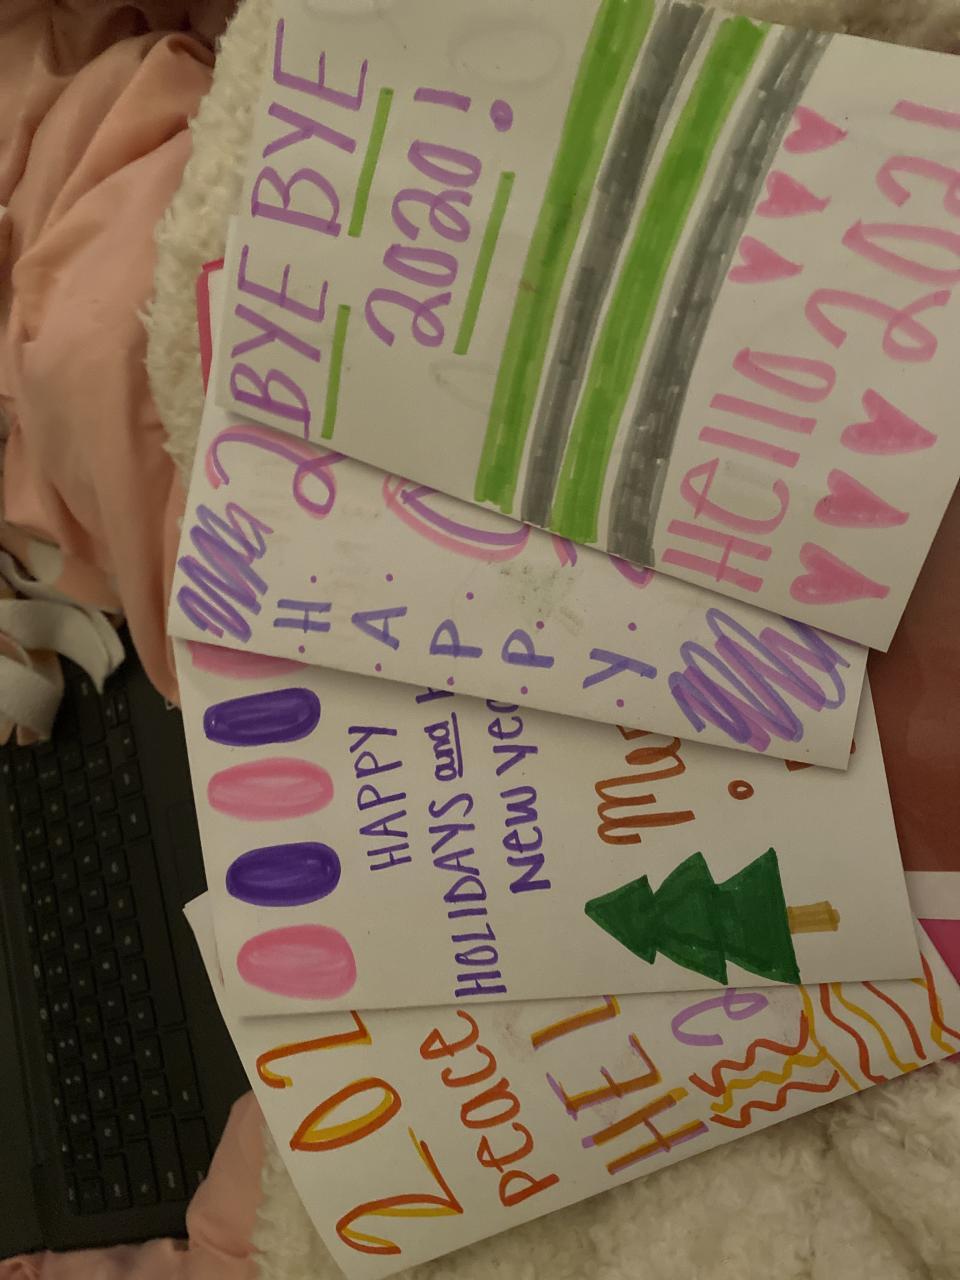 BYE BYE
2020!
Hello 2021
H.A.P.P.Y.
HAPPY
HOLIDAYS and
New
peace